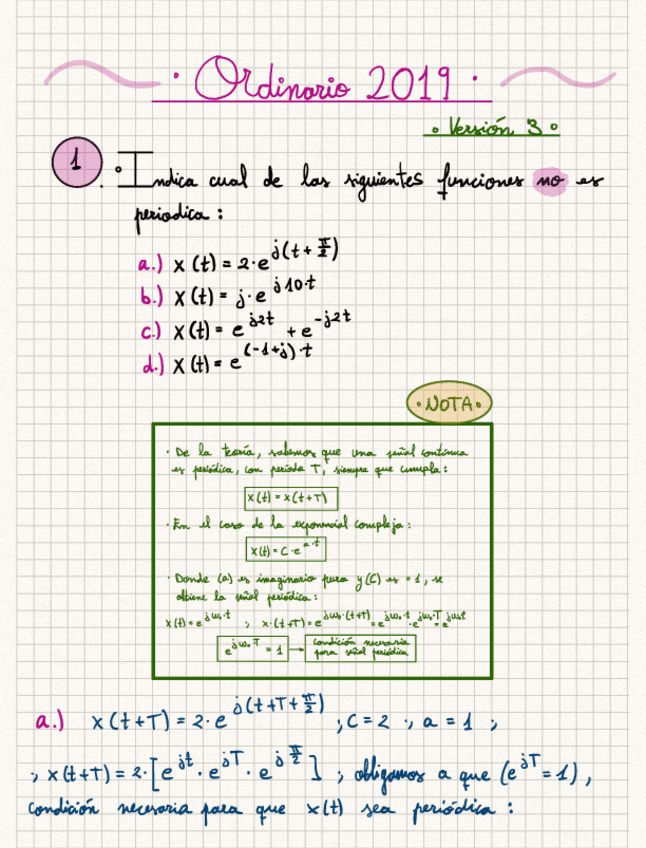 · Ordinario 2019 ·
· Versión 3 ·
1 · Indica cual de las siguientes funciones no es
periodica :
a.) x(t) = 2·e^{j(t+π/2)}
b.) x(t) = j·e^{j10·t}
c.) x(t) = e^{j2t} + e^{-j2t}
d.) x(t) = e^{(-1+j)·t}
· NOTA ·
· De la teoría, sabemos que una señal continua
es periódica, con periodo T, siempre que cumpla:
x(t) = x(t+T)
· En el caso de la exponencial compleja:
x(t) = C·e^{a·t}
· Donde (a) es imaginario pura y (C) es = 1, se
obtiene la señal periódica:
x(t) = e^{jω₀·t} ; x·(t+T) = e^{jω₀·(t+T)} = e^{jω₀·t}·e^{jω₀·T} = e^{jω₀t}
e^{jω₀·T} = 1 → condición necesaria
para señal periódica
a.) x(t+T) = 2·e^{j(t+T+π/2)} ; C = 2 ; a = 1 ;
; x(t+T) = 2·[e^{jt}·e^{jT}·e^{jπ/2}] ; obligamos a que (e^{jT} = 1),
condición necesaria para que x(t) sea periódica :